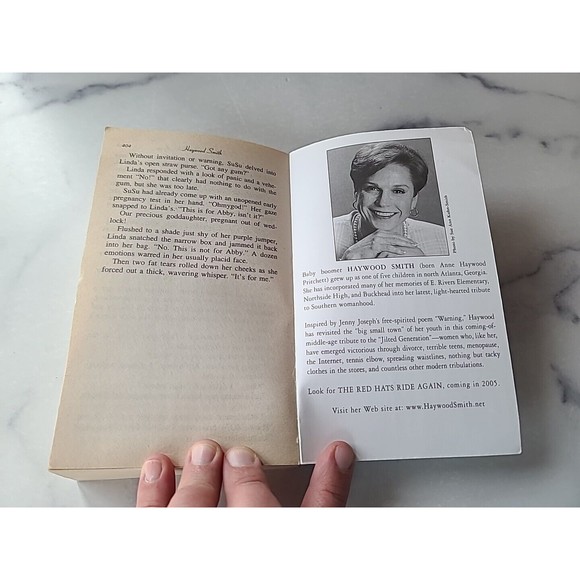 404
Haywood Smith
Without invitation or warning, SuSu delved into
Linda's open straw purse. "Got any gum?"
Linda responded with a look of panic and a vehe-
ment "No!" that clearly had nothing to do with the
gum, but she was too late.
SuSu had already come up with an unopened early
pregnancy test in her hand. "Ohmygod!" Her gaze
snapped to Linda's. "This is for Abby, isn't it?"
Our precious goddaughter, pregnant out of wed-
lock!
Flushed to a shade just shy of her purple jumper,
Linda snatched the narrow box and jammed it back
into her bag. "No. This is not for Abby." A dozen
emotions warred in her usually placid face.
Then two fat tears rolled down her cheeks as she
forced out a thick, wavering whisper. "It's for me."
Baby boomer HAYWOOD SMITH (born Anne Haywood
Pritchett) grew up as one of five children in north Atlanta, Georgia.
She has incorporated many of her memories of E. Rivers Elementary,
Northside High, and Buckhead into her latest, light-hearted tribute
to Southern womanhood.
Inspired by Jenny Joseph's free-spirited poem "Warning," Haywood
has revisited the "big small town" of her youth in this coming-of-
middle-age tribute to the "Jilted Generation"—women who, like her,
have emerged victorious through divorce, terrible teens, menopause,
the Internet, tennis elbow, spreading waistlines, nothing but tacky
clothes in the stores, and countless other modern tribulations.
Look for THE RED HATS RIDE AGAIN, coming in 2005.
Visit her Web site at: www.HaywoodSmith.net